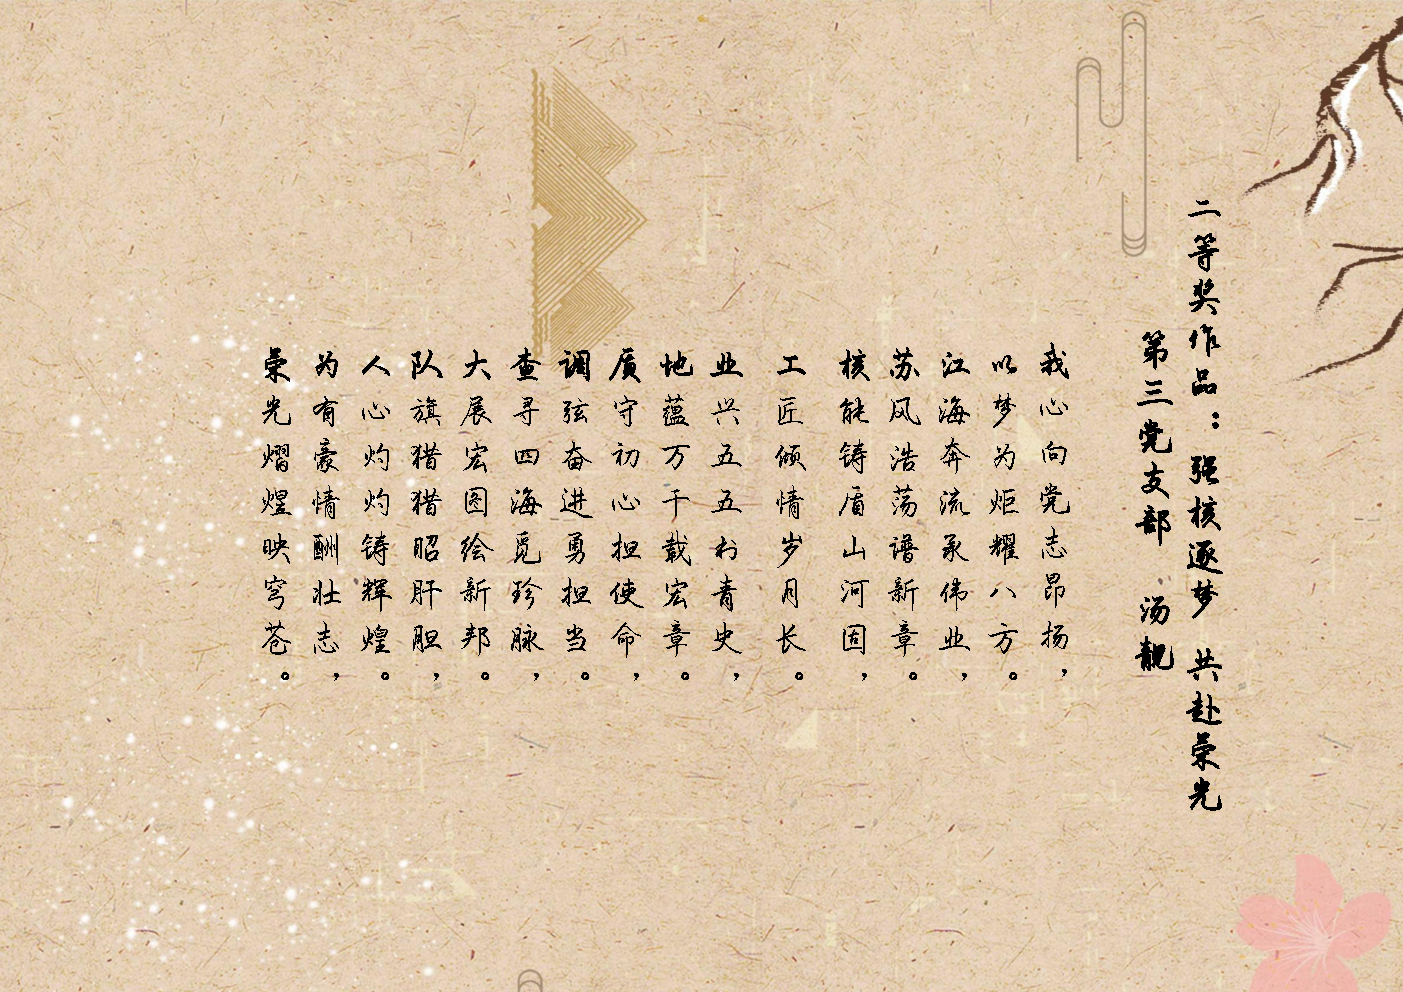 二等奖作品：强核逐梦 共赴荣光
第三党支部 汤靓
我心向党志昂扬，
以梦为炬耀八方。
江海奔流承伟业，
苏风浩荡谱新章。
核能铸盾山河固，
工匠倾情岁月长。
业兴五五书青史，
地蕴万千载宏章。
质守初心担使命，
调弦奋进勇担当。
查寻四海觅珍脉，
大展宏图绘新邦。
队旗猎猎昭肝胆，
人心灼灼铸辉煌。
为有豪情酬壮志，
荣光熠煌映穹苍。